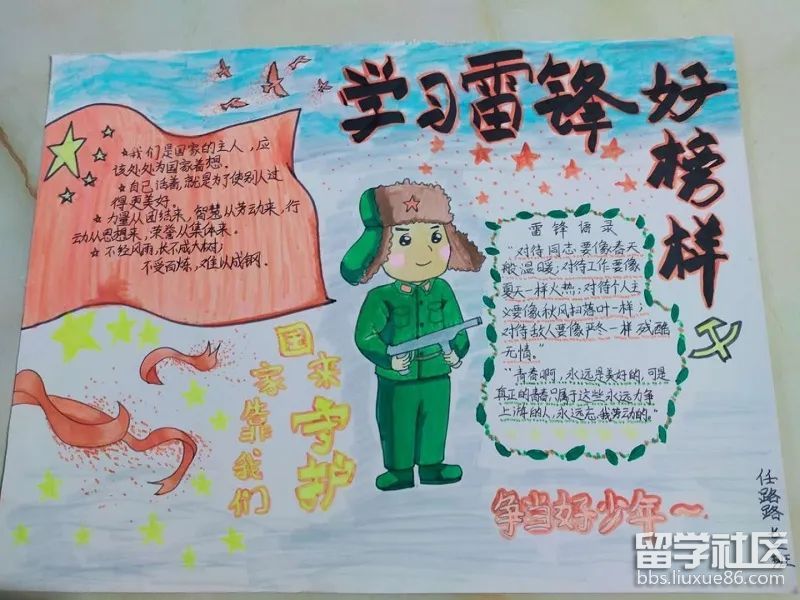 学习雷锋好榜样
★我们是国家的主人，应
该处处为国家着想。
★自己活着，就是为了使别人过
得更美好。
★力量从团结来，智慧从劳动来，行
动从思想来，荣誉从集体来。
★不经风雨，长不成大树；
不受百炼，难以成钢。
雷锋语录
“对待同志要像春天
般温暖；对待工作要像
夏天一样火热；对待个人主
义要像秋风扫落叶一样；
对待敌人要像严冬一样残酷
无情。”
“青春啊，永远是美好的，可是
真正的青春只属于这些永远力争
上游的人，永远忘我劳动的。”
国家靠我们
来守护
争当好少年～
任路路
班
留学社区
bbs.liuxue86.com